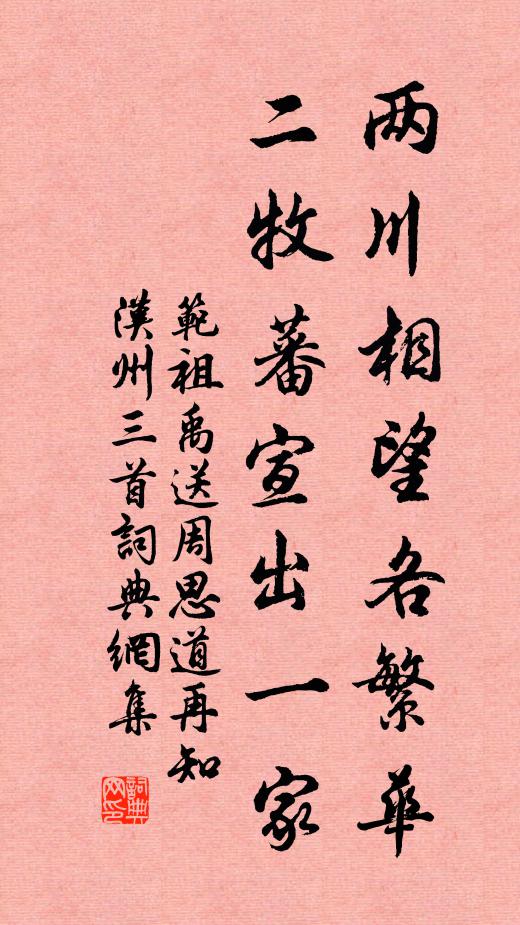 两川相望各繁華
二牧蕃宣出一家
範祖禹送周思道再知
漢州三首詞典網集
詞典
网印